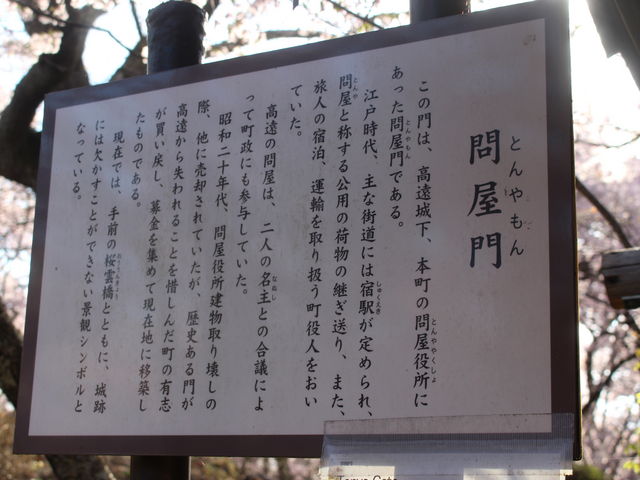 とんやもん
問屋門
この門は、高遠城下、本町の問屋役所に
あった問屋門である。
江戸時代、主な街道には宿駅が定められ、
問屋と称する公用の荷物の継ぎ送り、また、
旅人の宿泊、運輸を取り扱う町役人をおい
ていた。
高遠の問屋は、二人の名主との合議によ
って町政にも参与していた。
昭和二十年代、問屋役所建物取り壊しの
際、他に売却されていたが、歴史ある門が
高遠から失われることを惜しんだ町の有志
が買い戻し、募金を集めて現在地に移築し
たものである。
現在では、手前の桜雲橋とともに、城跡
には欠かすことができない景観シンボルと
なっている。
Tonya Gate